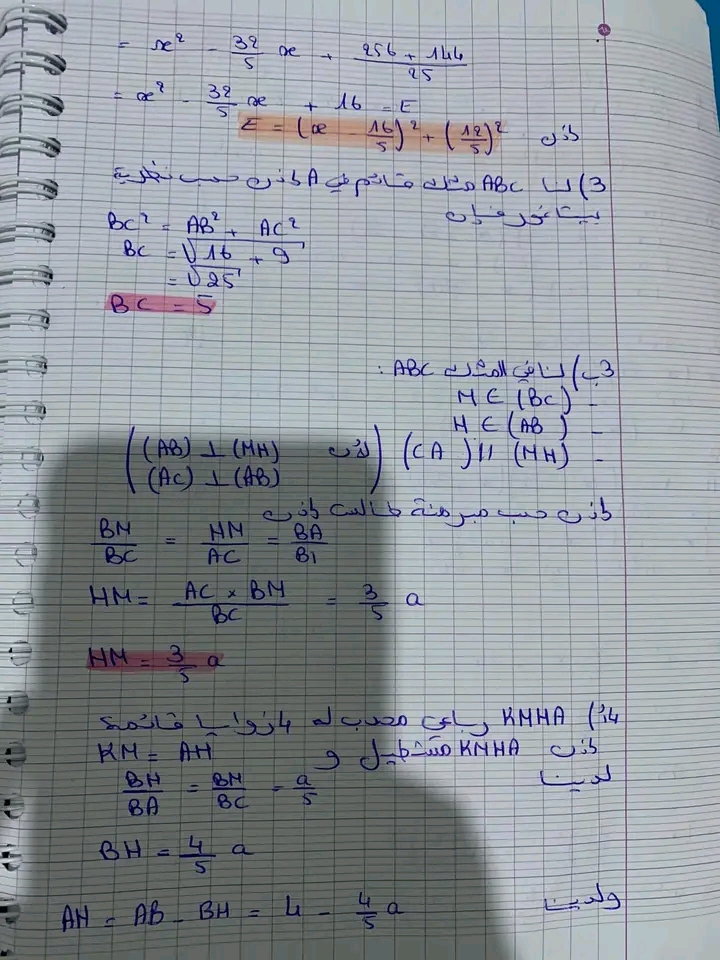 = x² - 32/5 x + (256 + 144)/25
= x² - 32/5 x + 16 = E
إذن E = (x - 16/5)² + (12/5)²
3) أ ABC مثلث قائم في A إذن حسب نظرية
بيتاغور فإن
BC² = AB² + AC²
BC = √(16 + 9)
= √25
BC = 5
3ب) لنا في المثلث ABC :
- M ∈ (BC)
- H ∈ (AB)
- (CA) // (MH) (لأن (AB) ⊥ (MH)
(AC) ⊥ (AB))
إذن حسب مبرهنة طالس إذن
BM/BC = HM/AC = BA/B1
HM = (AC × BM)/BC = 3/5 a
HM = 3/5 a
4أ) KMHA رباعي محدب له 4 زوايا قائمة
إذن KMHA مستطيل و KM = AH
لدينا BH/BA = BM/BC = a/5
BH = 4/5 a
ولدينا AH = AB - BH = 4 - 4/5 a